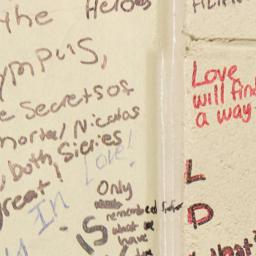 the Heroes
ympus,
e Secrets of
mortal Nicolas
, both Sieries
reat!
In Love!
Only
remembered for
IS what
have
Love
will fin
a way
L
D